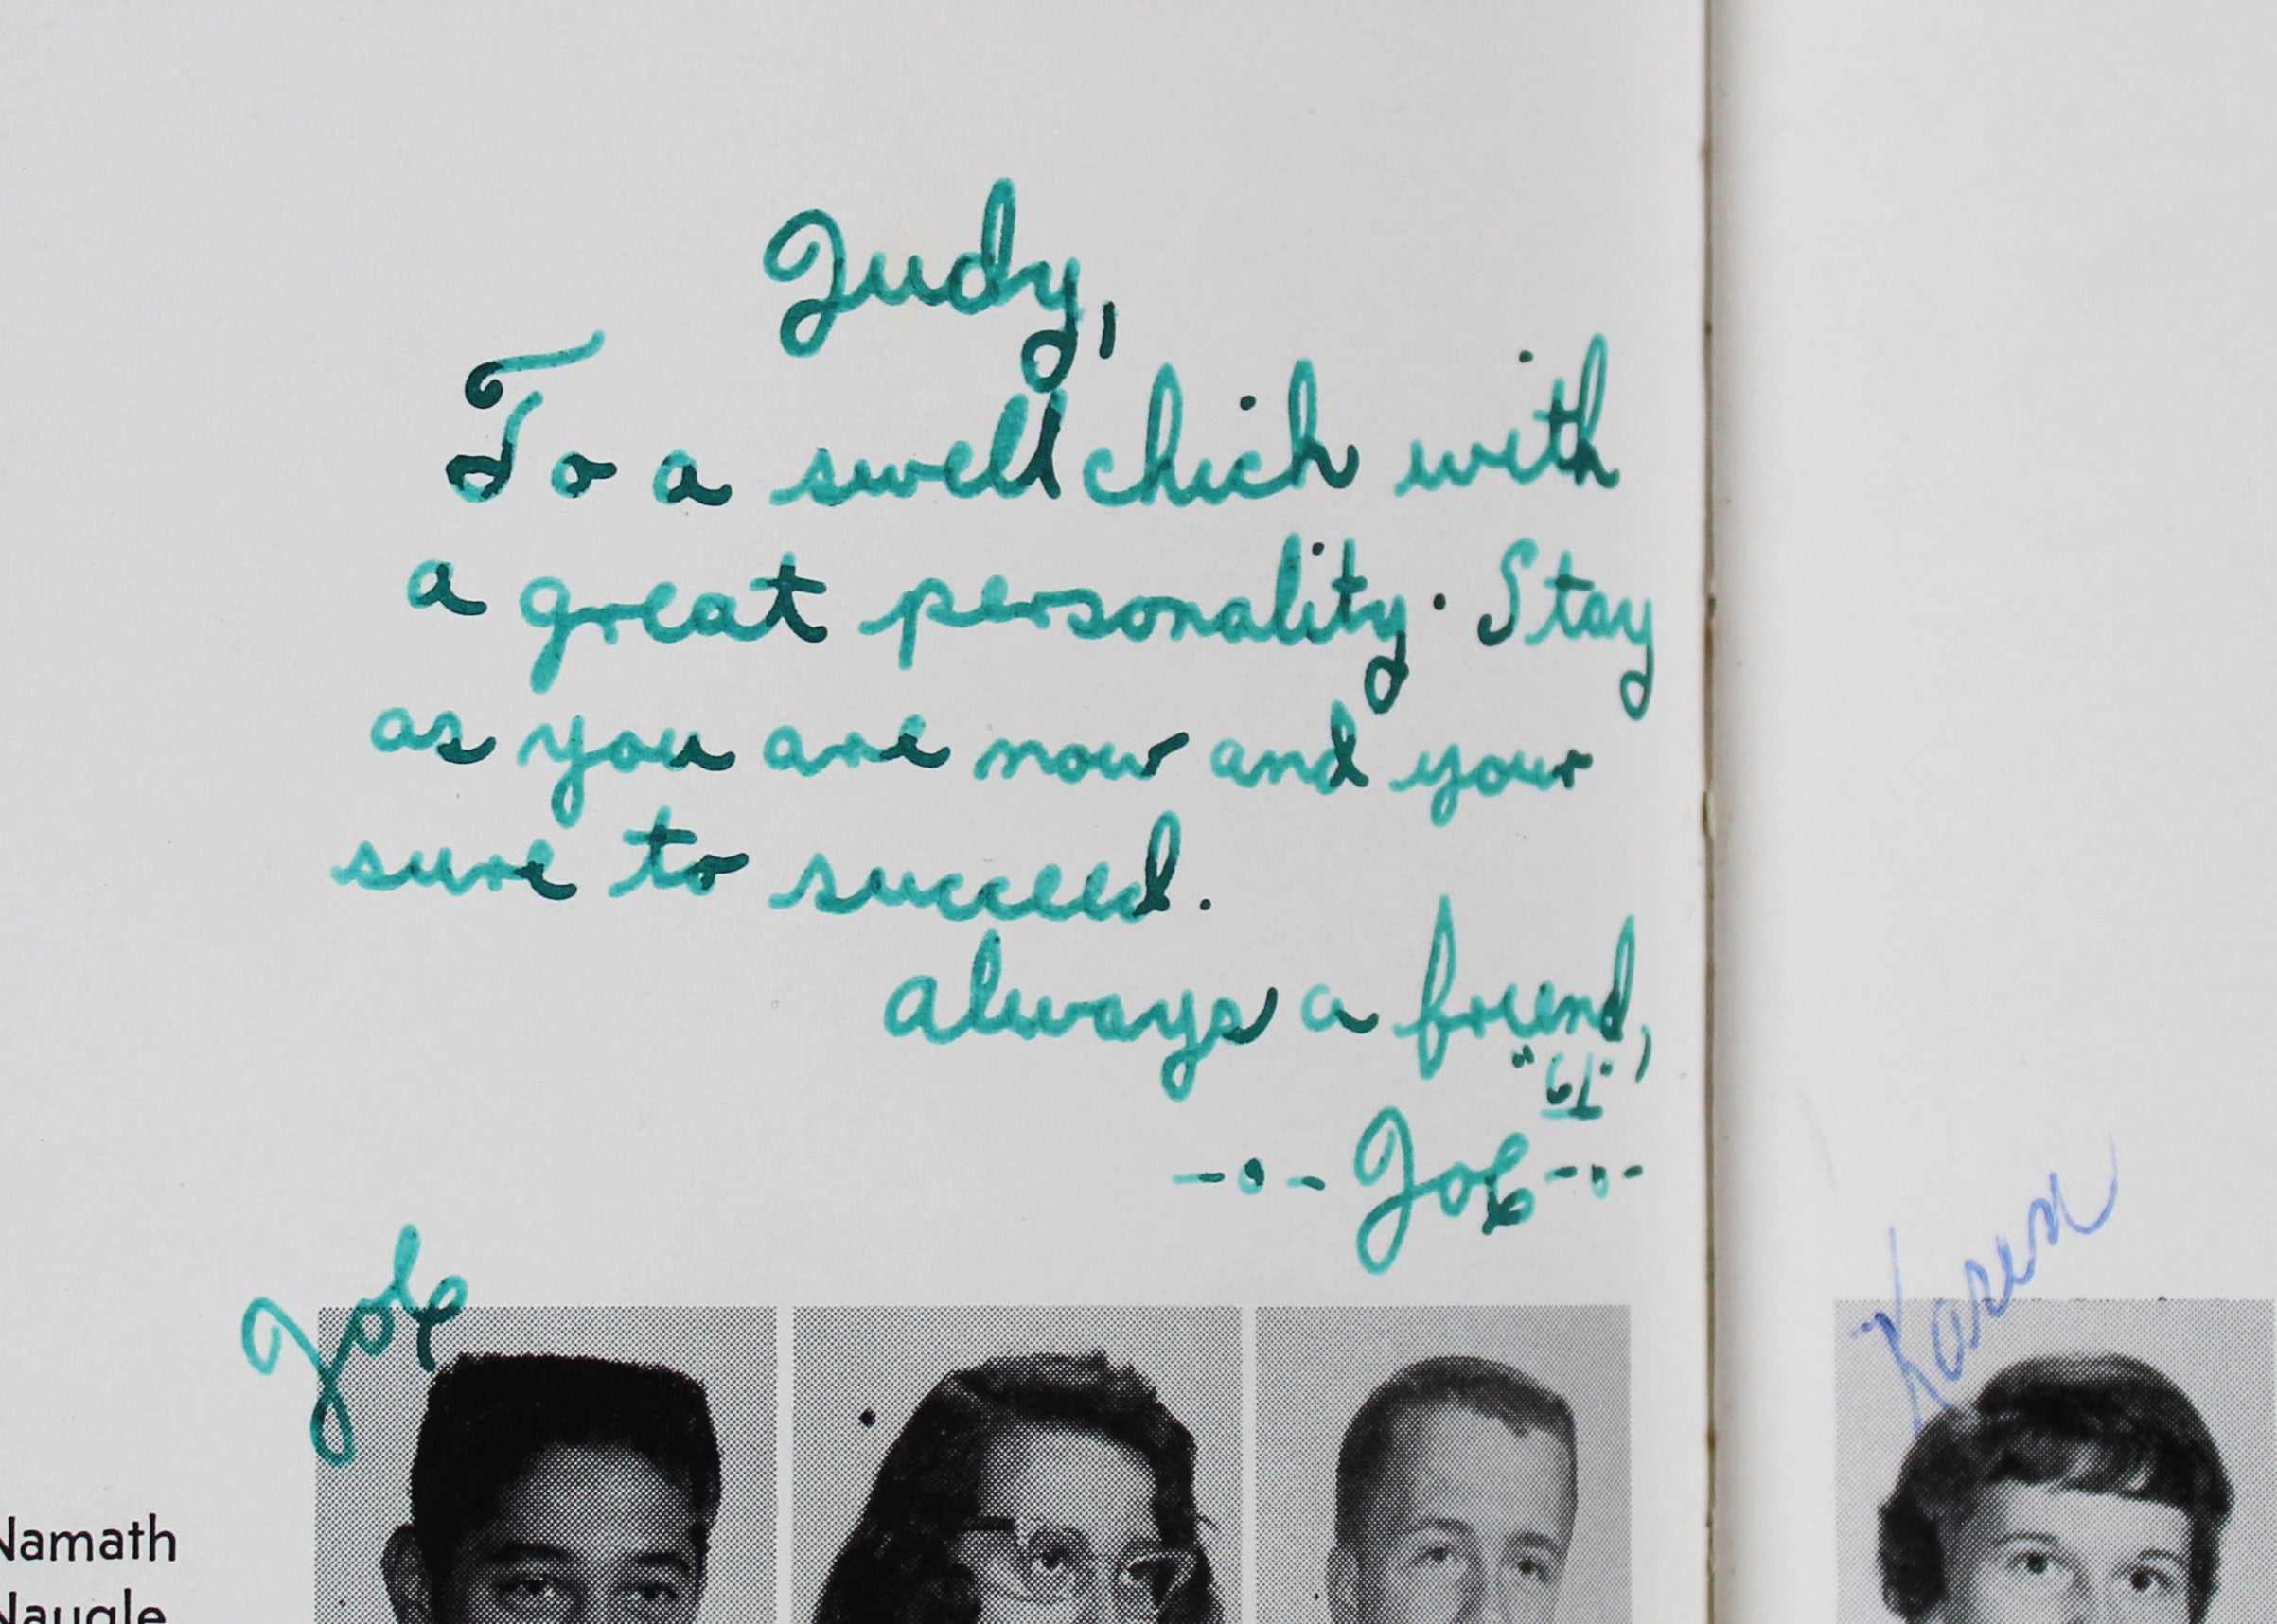 Judy,
To a swell chick with
a great personality. Stay
as you are now and your
sure to succeed.
always a friend,
"61"
--o-- Joe --o--
Joe
Karen
Namath
Naugle